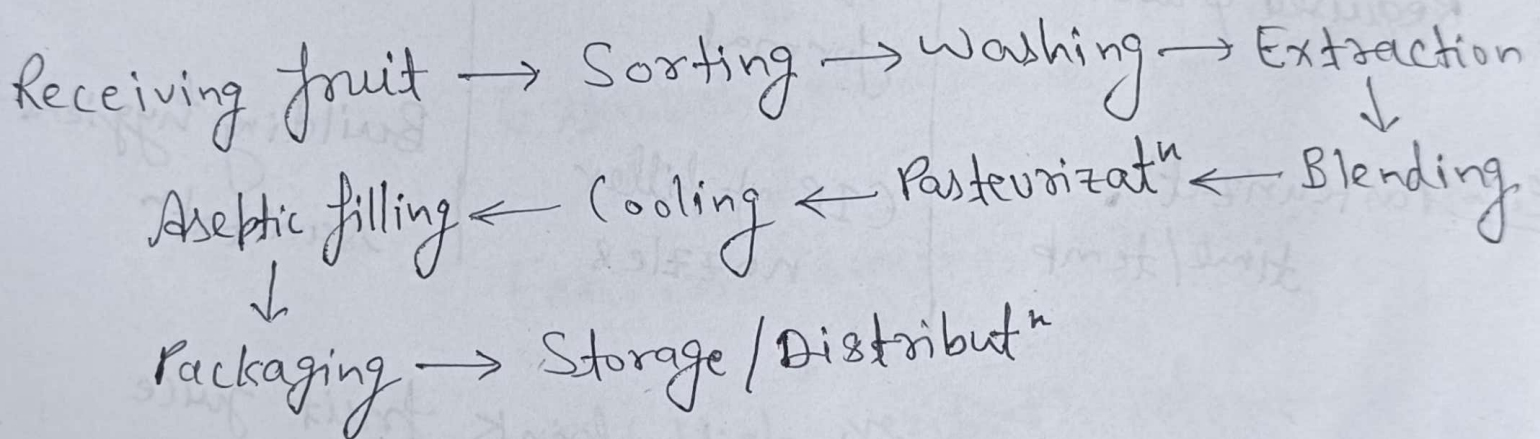 Receiving fruit → Sorting → Washing → Extraction
↓
Aseptic filling ← Cooling ← Pasteurizatⁿ ← Blending
↓
Packaging → Storage / Distributⁿ